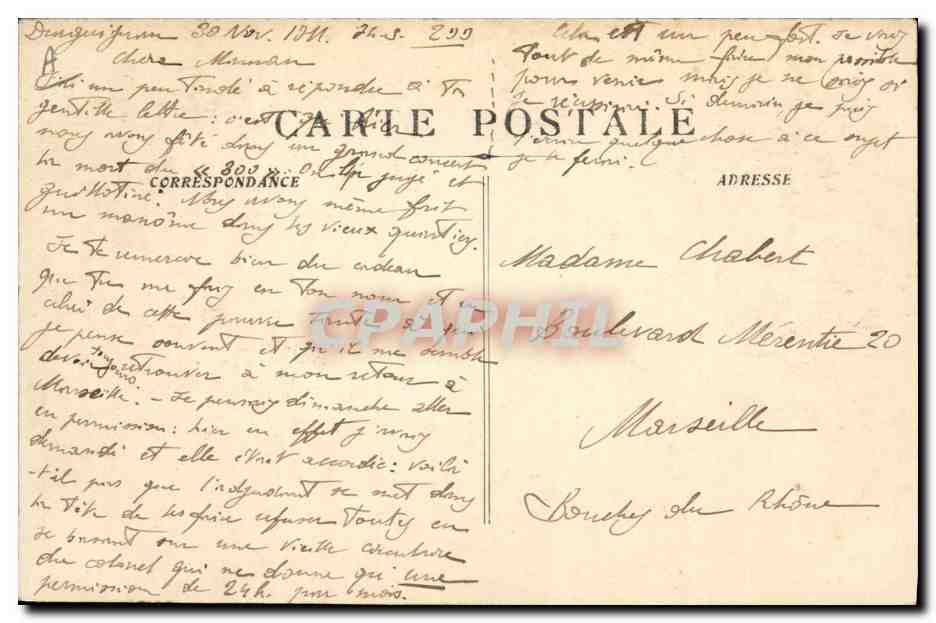 Draguignan 30 Nov. 1911. 74-S. 299
Chère Maman
un peu tardé à répondre à ta
gentille lettre: c'est que hier
nous avons fêté dans un grand concert
la mort du « 300 ». On l'a jugé et
guillotiné. Nous avons même fait
un manôme dans les vieux quartiers.
Je te remercie bien du cadeau
que tu me fais en ton nom et en
celui de cette pauvre tante à qui
je pense souvent et qu'il me semble
devoir toujours retrouver à mon retour à
Marseille. - Je pensais dimanche aller
en permission: hier en effet j'avais
demandé et elle était accordée: voilà
-t-il pas que l'adjudant se met dans
la tête de les faire refuser toutes en
se basant sur une vieille circulaire
du colonel qui ne donne qu'une
permission de 24h. par mois.
Cela est un peu fort. Je vais
tout de même faire mon possible
pour venir mais je ne sais si
je réussirai. Si demain je puis
t'écrire quelque chose à ce sujet
je le ferai.
CARTE POSTALE
CORRESPONDANCE
ADRESSE
Madame Chabert
Boulevard Merentié 20
Marseille
Bouches du Rhône
CPAPHIL